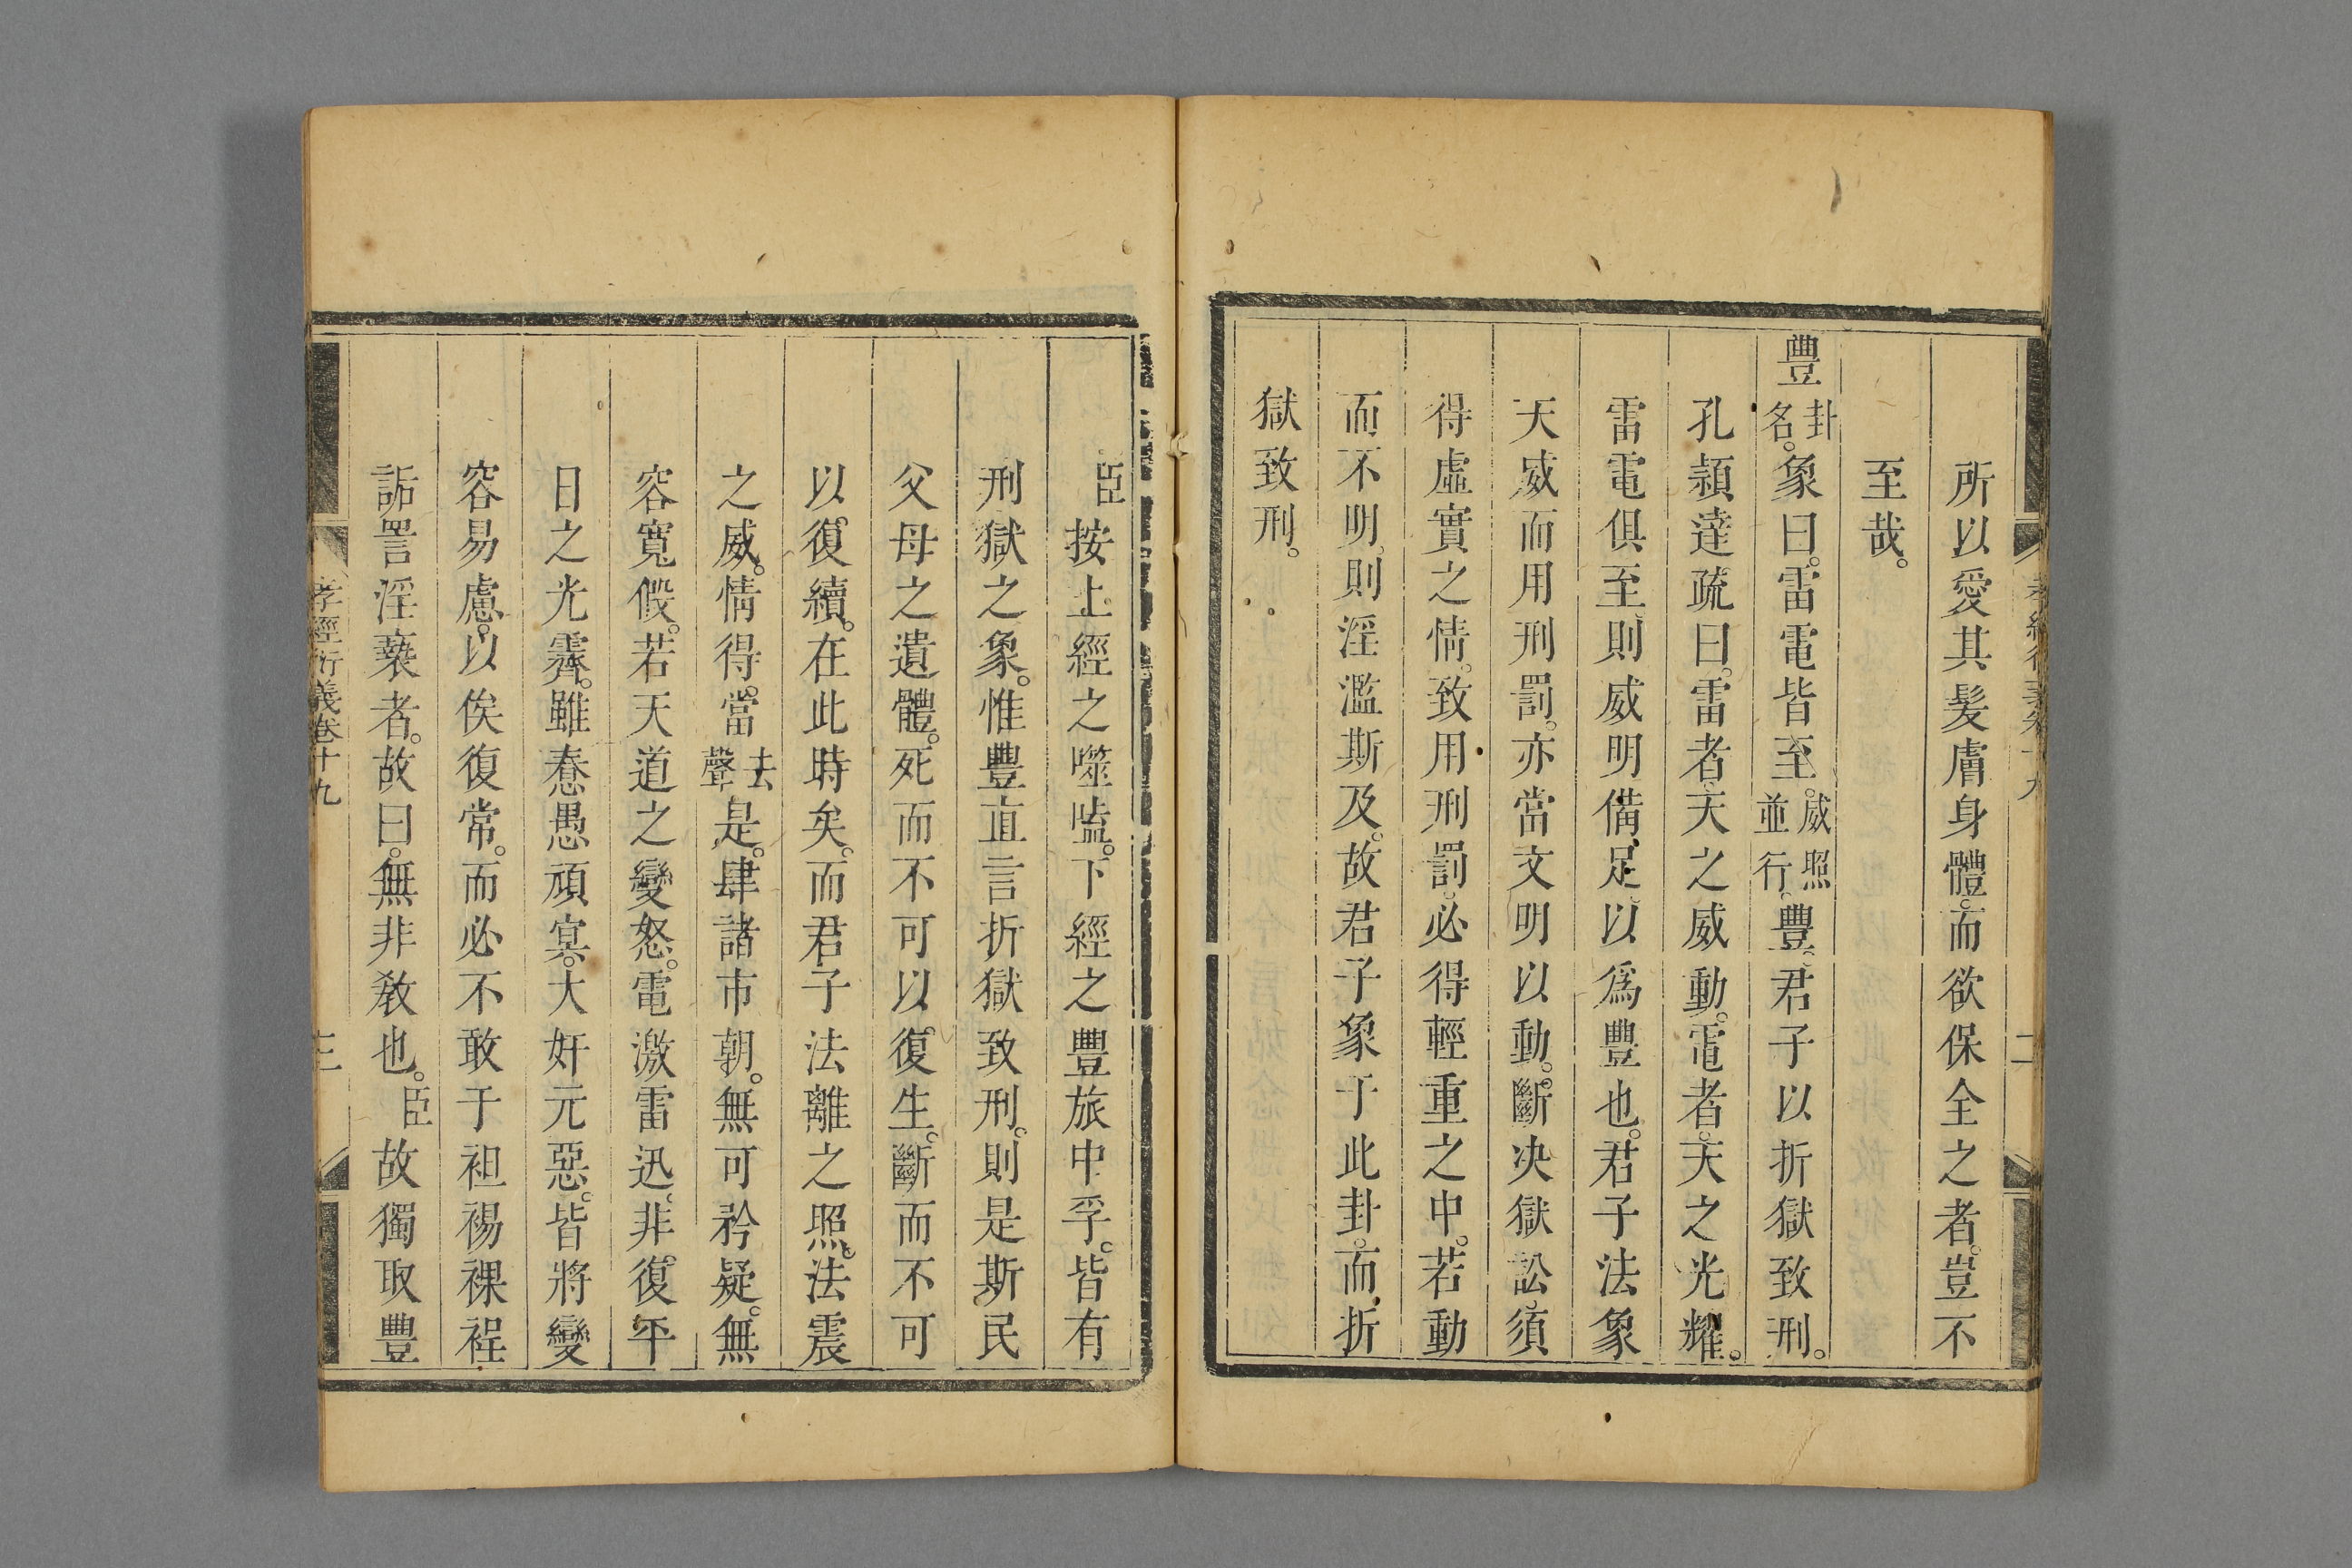 孝經衍義卷十九
二
所以愛其髮膚身體。而欲保全之者。豈不
至哉。
豐卦名。象曰。雷電皆至。威照並行。豐。君子以折獄致刑。
孔穎達疏曰。雷者。天之威動。電者。天之光耀。
雷電俱至。則威明備足。以爲豐也。君子法象
天威而用刑罰。亦當文明以動。斷决獄訟。須
得虛實之情。致用刑罰。必得輕重之中。若動
而不明。則淫濫斯及。故君子象于此卦。而折
獄致刑。
臣按上經之噬嗑。下經之豐旅中孚。皆有
刑獄之象。惟豐直言折獄致刑。則是斯民
父母之遺體。死而不可以復生。斷而不可
以復續。在此時矣。而君子法離之照。法震
之威。情得。當去聲是。肆諸市朝。無可矜疑。無
容寬假。若天道之變怒。電激雷迅。非復平
日之光霽。雖惷愚頑冥。大奸元惡。皆將變
容易慮。以俟復常。而必不敢于袒裼裸裎
詬詈淫褻者。故曰。無非敎也。臣故獨取豐
孝經衍義卷十九
三